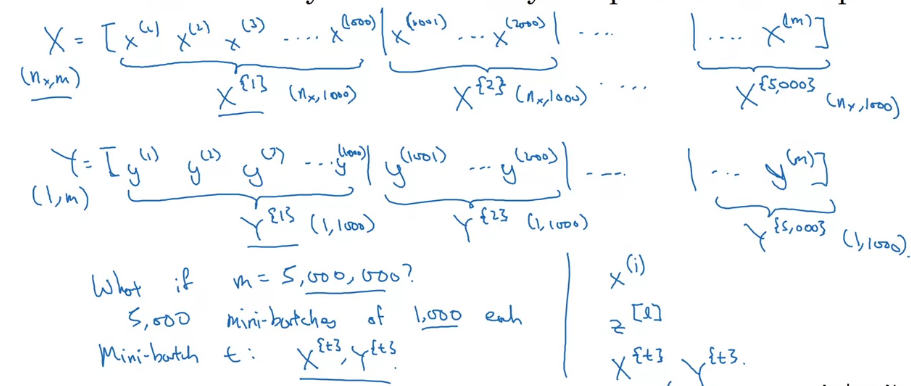 X = [ x^(1) x^(2) x^(3) .... x^(1000) | x^(1001) ... x^(2000) | .... | .... x^(m) ]
(n_x, m) X^{1} (n_x, 1000) X^{2} (n_x, 1000) .... X^{5,000} (n_x, 1000)
Y = [ y^(1) y^(2) y^(3) ... y^(1000) | y^(1001) ... y^(2000) | .... | ... y^(m) ]
(1, m) Y^{1} (1, 1000) Y^{2} (1, 1000) Y^{5,000} (1, 1000).
What if m = 5,000,000?
5,000 mini-batches of 1,000 each
Mini-batch t: X^{t}, Y^{t}.
x^(i)
z^[l]
X^{t} Y^{t}.